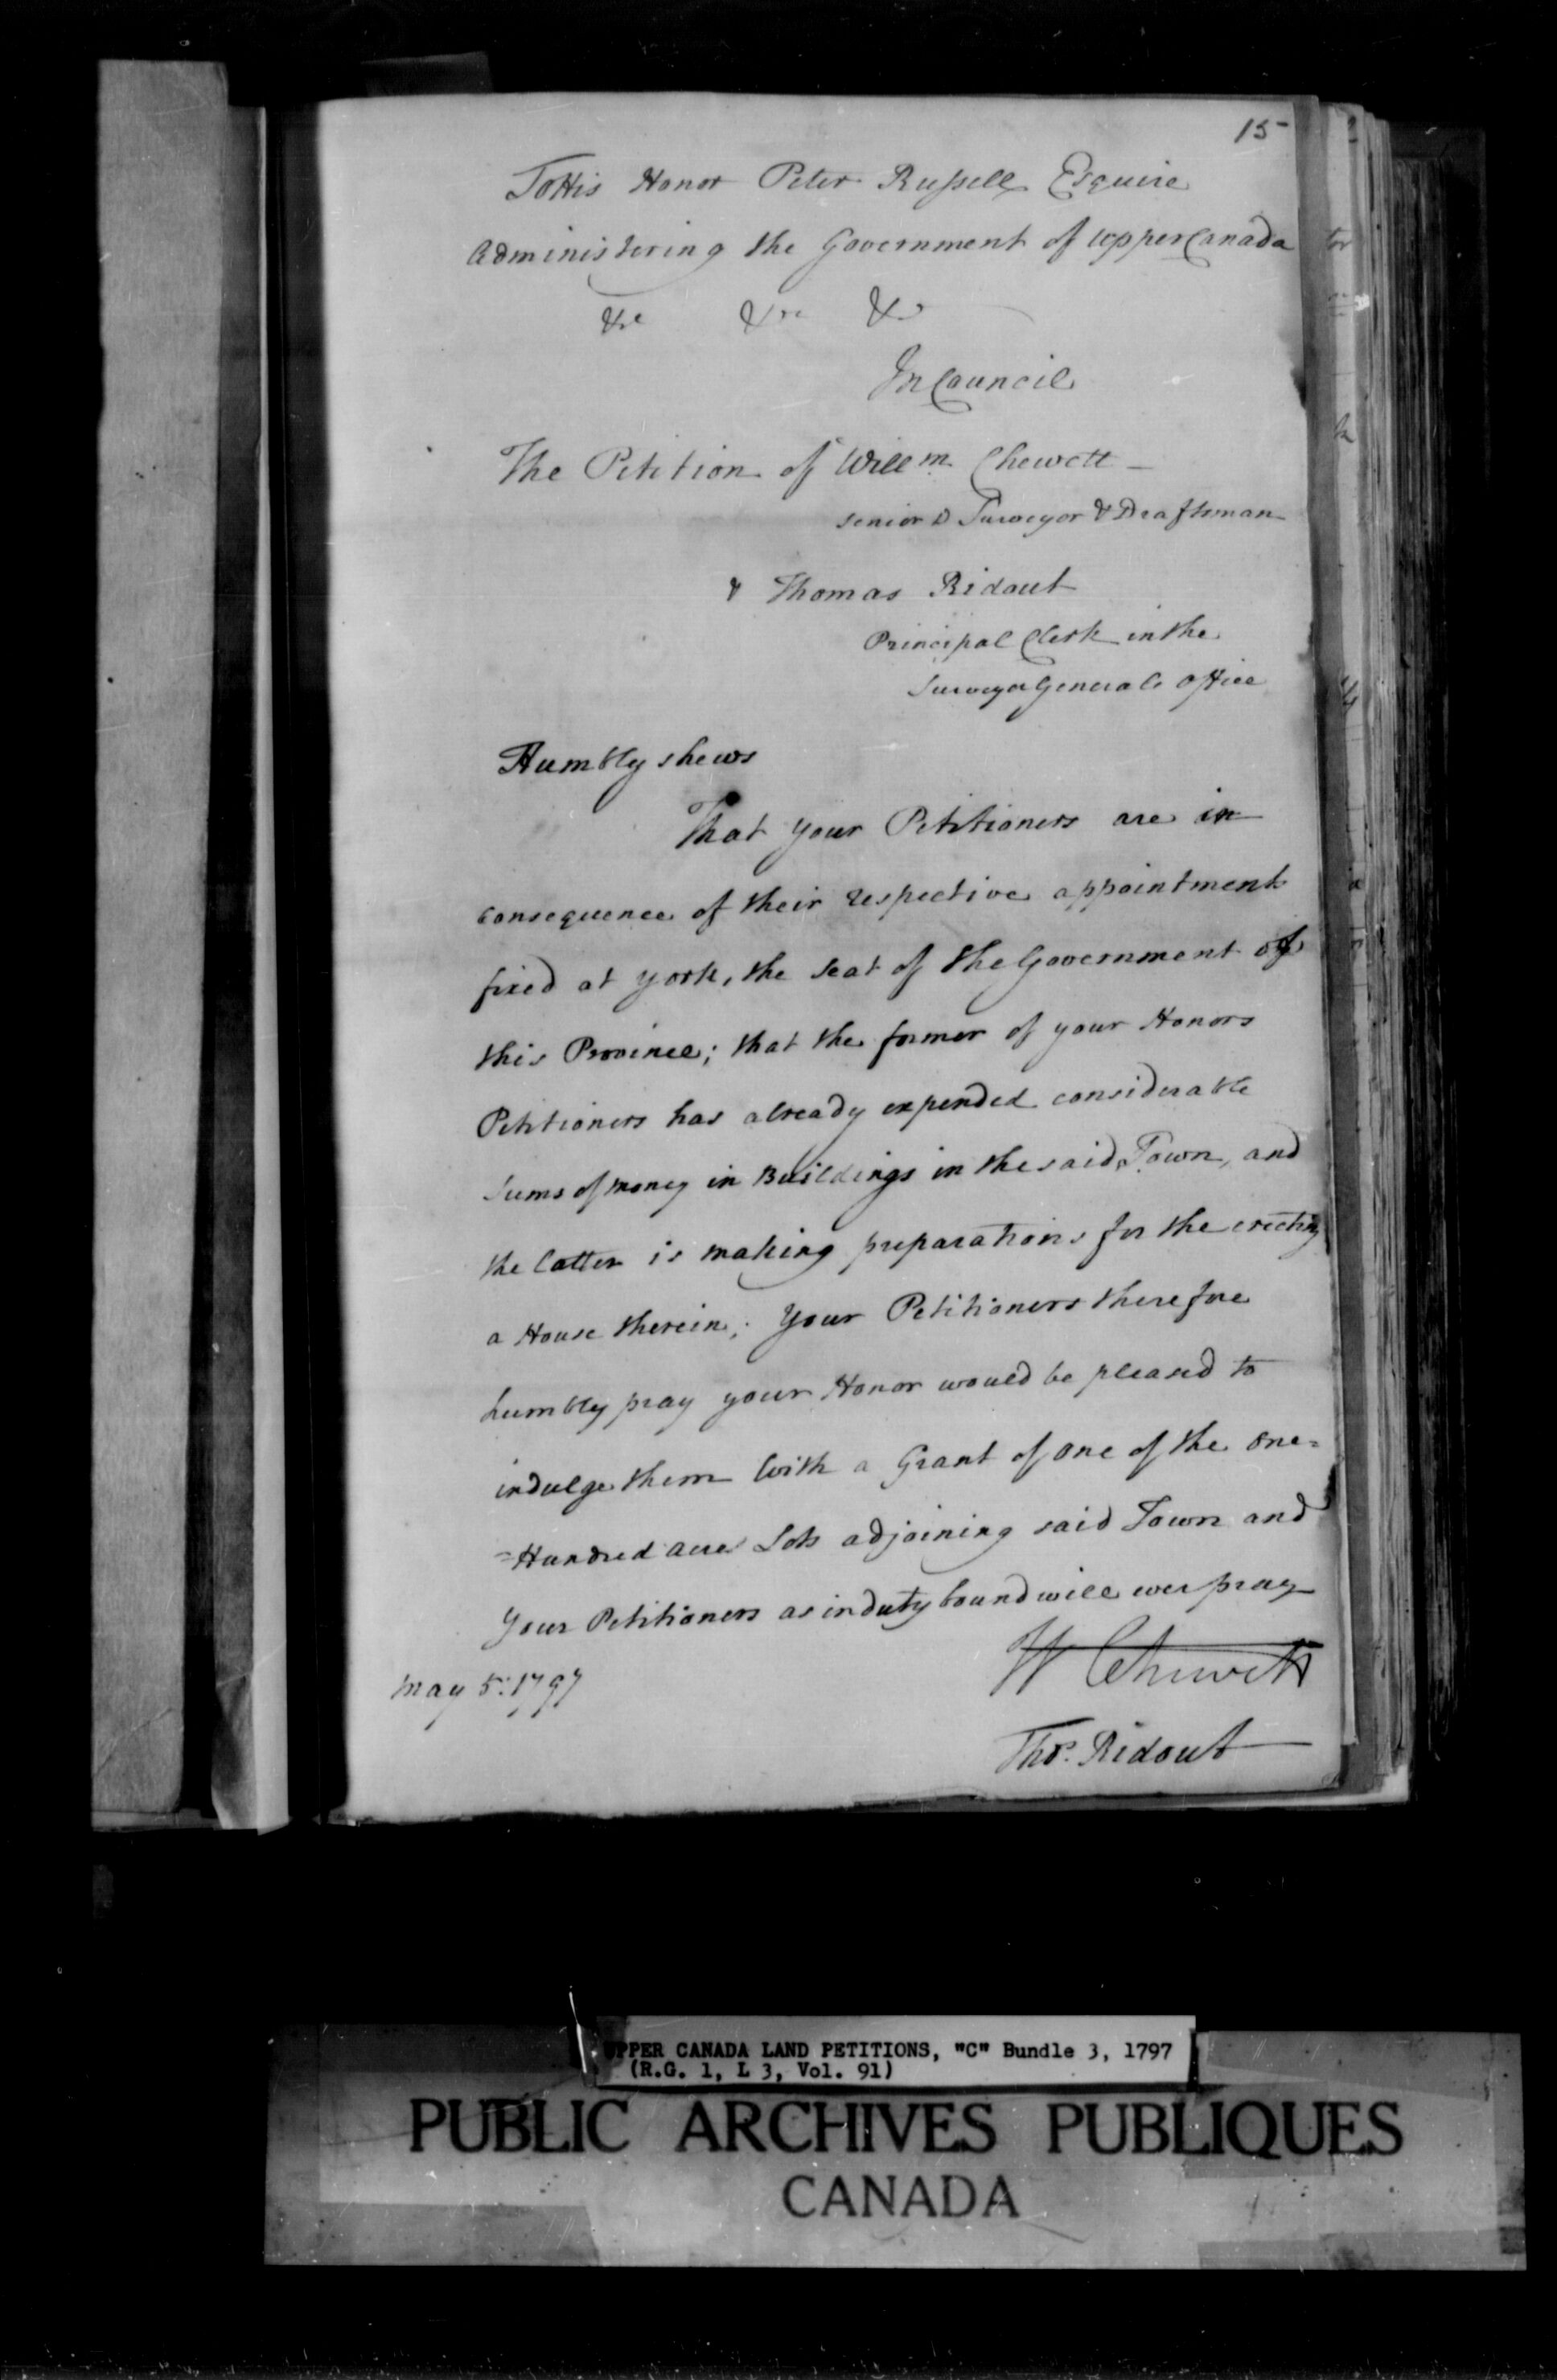 15
To His Honor Peter Russell Esquire
Administering the Government of Upper Canada
&c &c &c
In Council
The Petition of Willm Chewett
senior D Surveyor & Draftsman
& Thomas Ridout
Principal Clerk in the
Surveyor Generals Office
Humbly shews
That your Petitioners are in
consequence of their respective appointments
fixed at York, the seat of the Government of
this Province; that the former of your Honors
Petitioners has already expended considerable
sums of money in Buildings in the said Town, and
the latter is making preparations for the erecting
a House therein; Your Petitioners therefore
humbly pray your Honor would be pleased to
indulge them with a Grant of one of the one=
=Hundred acres Lots adjoining said Town and
Your Petitioners as in duty bound will ever pray
W Chewett
May 5: 1797
Thos. Ridout
UPPER CANADA LAND PETITIONS, "C" Bundle 3, 1797
(R.G. 1, L 3, Vol. 91)
PUBLIC ARCHIVES PUBLIQUES
CANADA